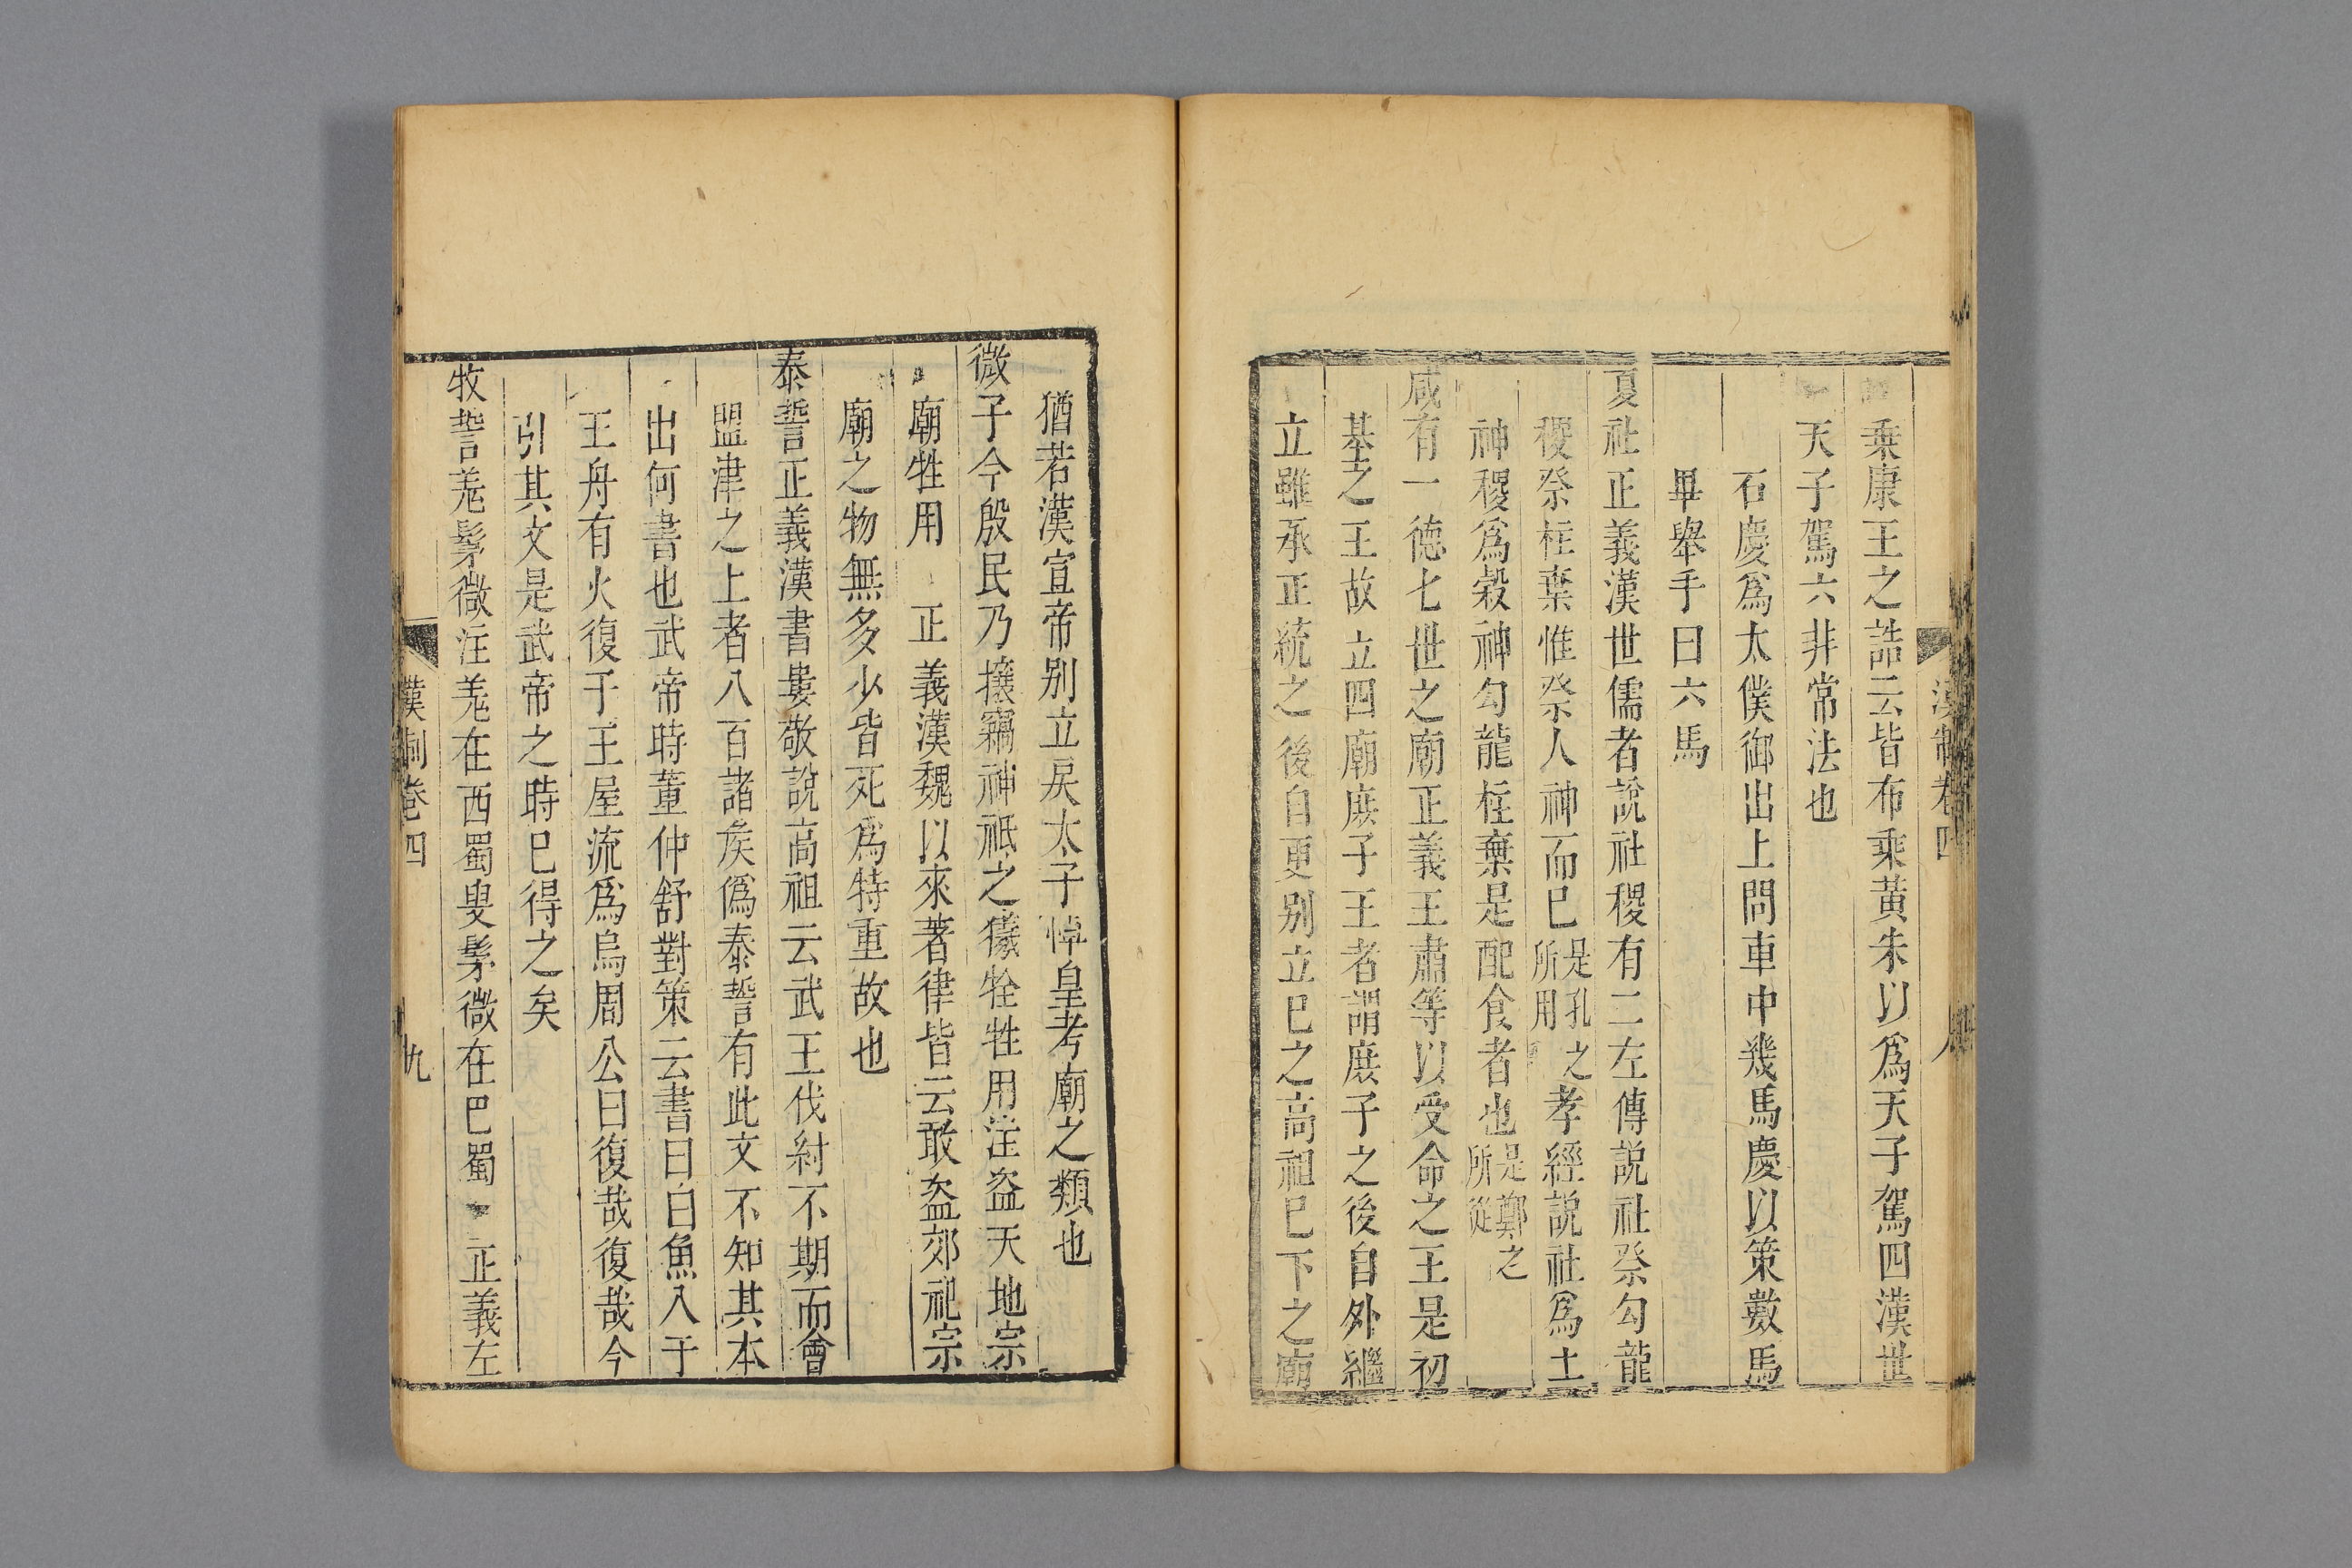 漢制卷四
乘康王之誥云皆布乘黃朱以爲天子駕四漢世
天子駕六非常法也
石慶爲太僕御出上問車中幾馬慶以策數馬
畢舉手曰六馬
夏社正義漢世儒者說社稷有二左傳說社祭勾龍
稷祭柱棄惟祭人神而已是孔之所用孝經說社爲土
神稷爲穀神勾龍柱棄是配食者也是鄭之所從
咸有一德七世之廟正義王肅等以受命之王是初
基之王故立四廟庶子王者謂庶子之後自外繼
立雖承正統之後自更别立已之高祖已下之廟
猶若漢宣帝别立戾太子悼皇考廟之類也
微子今殷民乃攘竊神祗之犧牷牲用注盜天地宗
廟牲用正義漢魏以來著律皆云敢盜郊祀宗
廟之物無多少皆死爲特重故也
泰誓正義漢書婁敬說高祖云武王伐紂不期而會
盟津之上者八百諸矦僞泰誓有此文不知其本
出何書也武帝時董仲舒對策云書曰白魚入于
王舟有火復于王屋流爲烏周公曰復哉復哉今
引其文是武帝之時已得之矣
牧誓羌髳微注羌在西蜀叟髳微在巴蜀正義左
漢制卷四
九